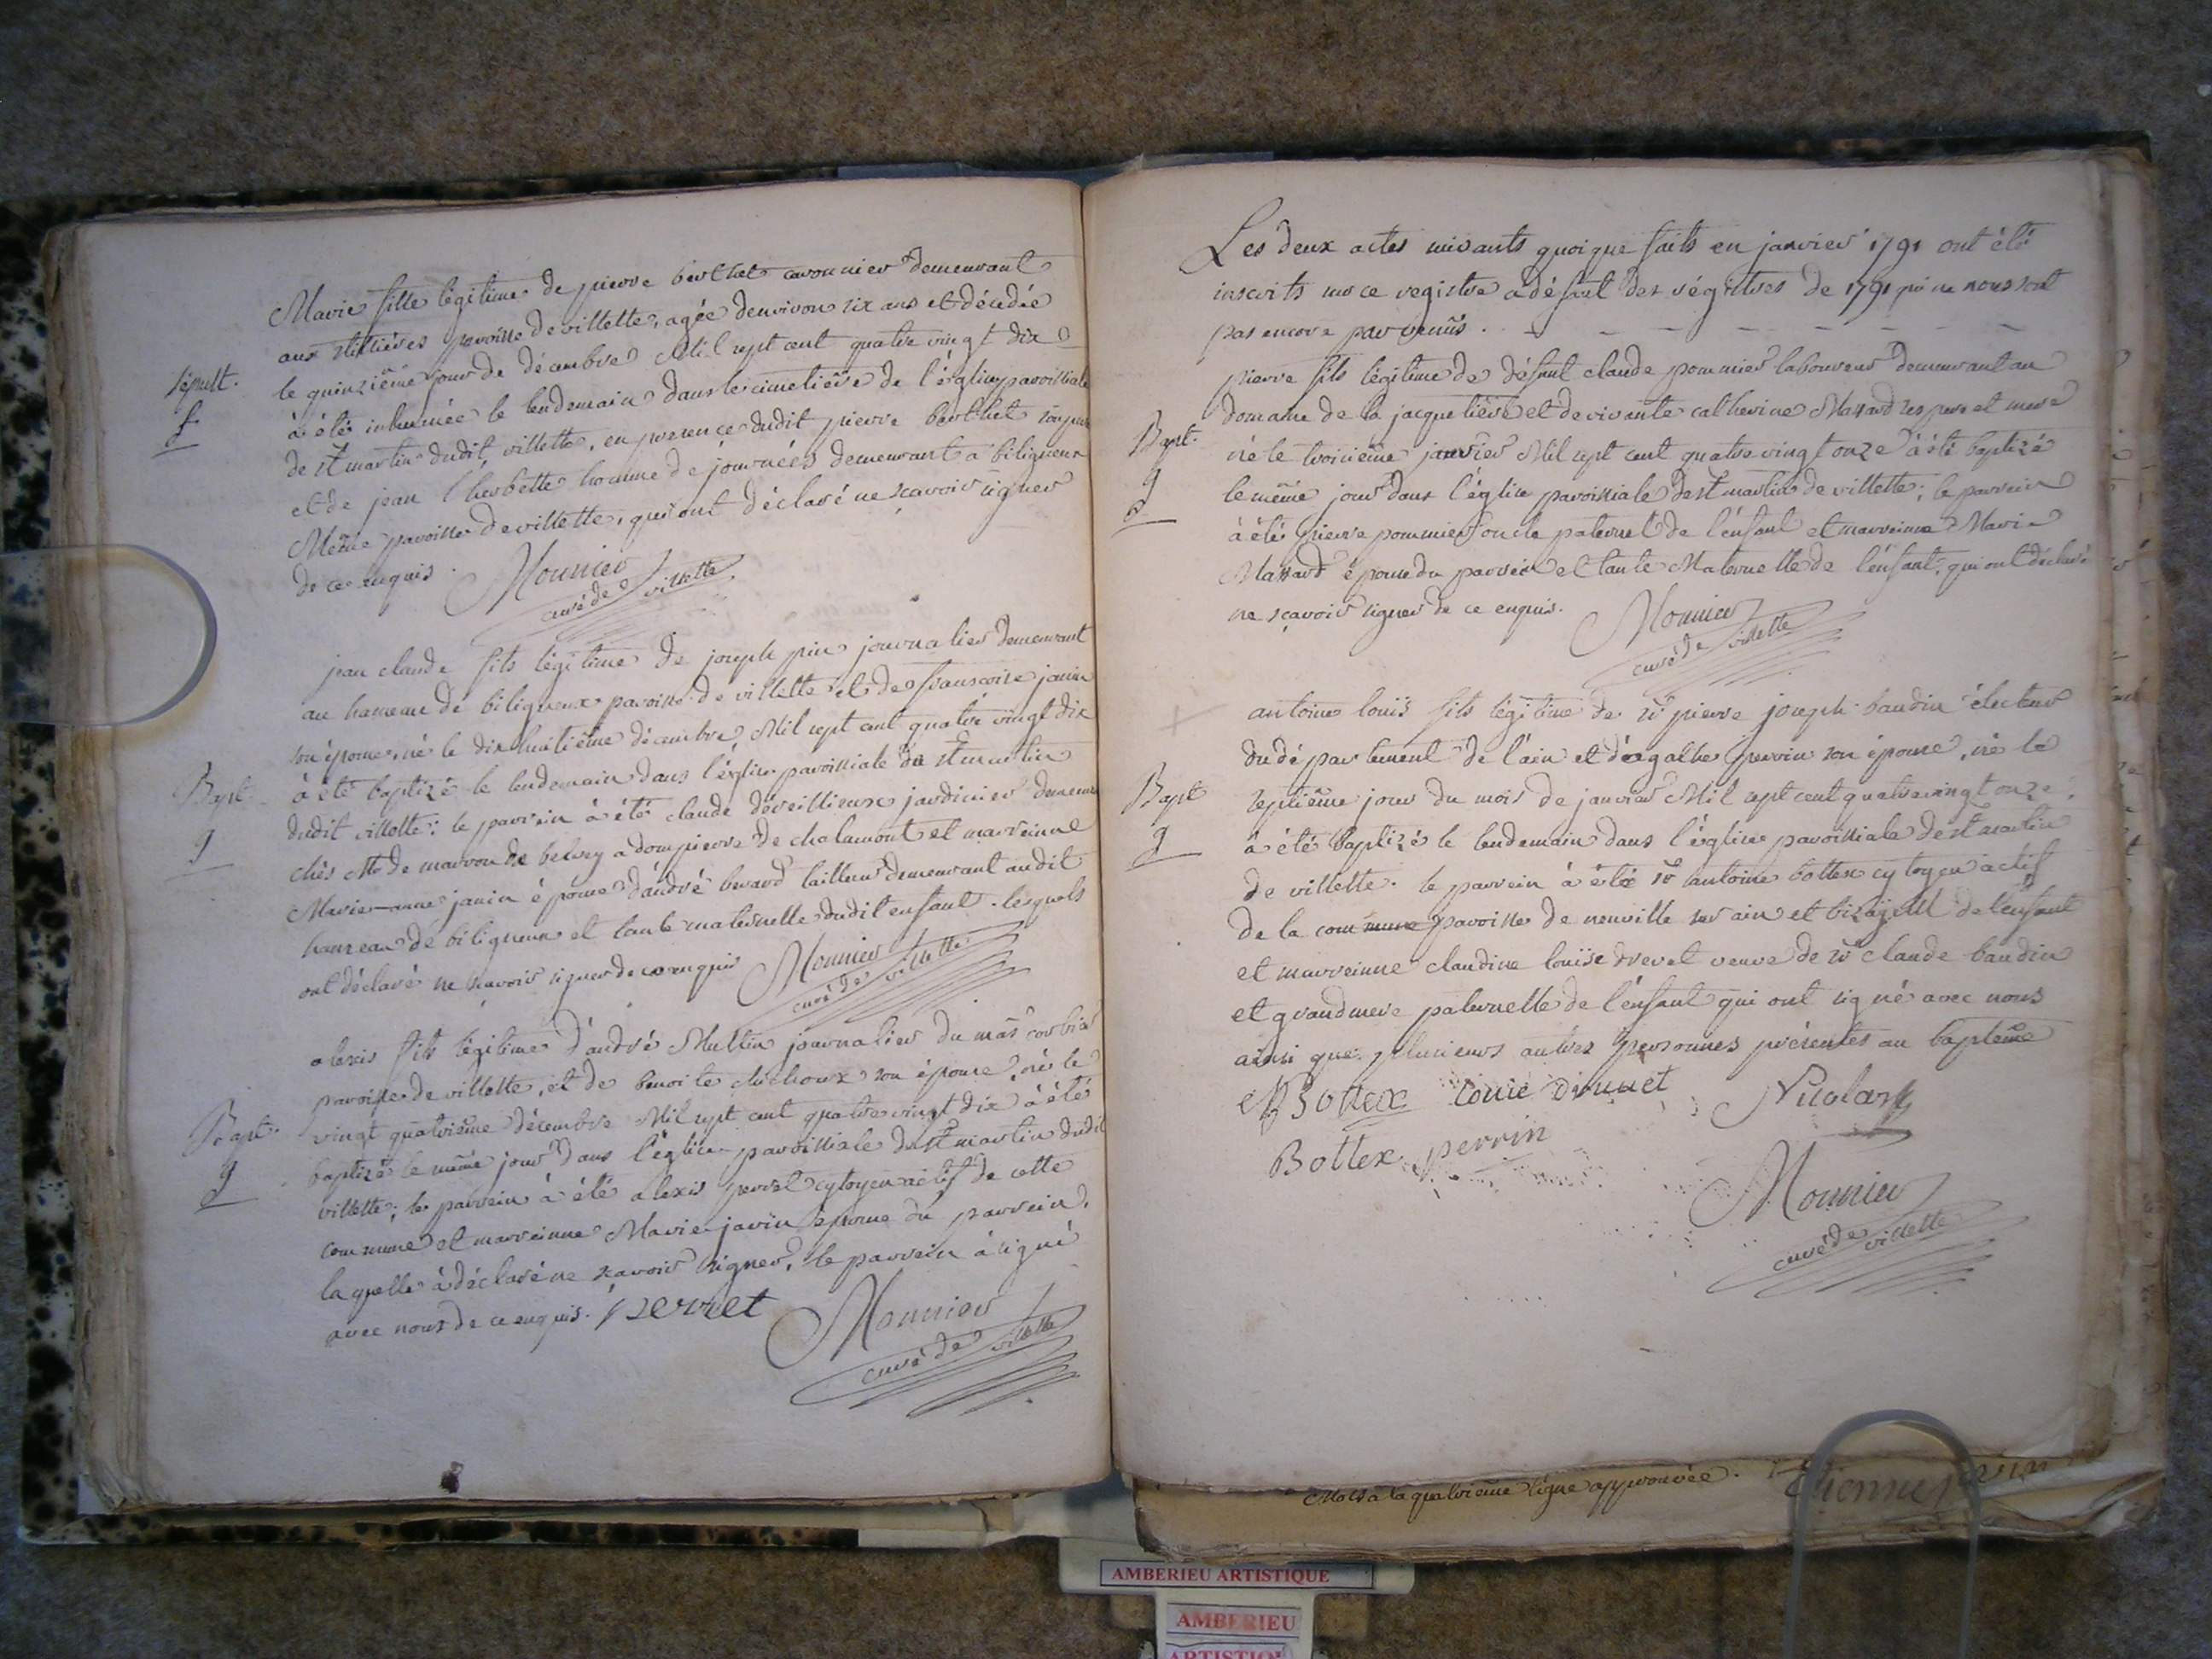 Marie fille légitime de pierre berthet cavonnier demeurant
aux paroisse de villette, agée d'environ six ans et décédée
sépult. le quinzième jour de décembre Mil sept cent quatre vingt dix
f à été inhumée le lendemain dans le cimetière de l'église paroissiale
de st martin dudit villette, en presence dudit pierre berthet son pere
et de jean l'herbette homme de journées demeurant a biligneux
Même paroisse de villette, qui ont déclaré ne sçavoir signer
de ce enquis. Monnier
curé de villette
jean claude fils légitime de joseph pin journalier demeurant
au hameau de biligneux paroisse de villette et de francoise janin
son épouse, né le dix huitième décembre Mil sept cent quatre vingt dix
Bapt. à été baptizé le lendemain dans l'église paroissiale de st martin
g dudit villette; le parrein à été claude déveillieux jardinier
chès Mr de marron de belvey a dompierre de chalamont et marreinne
Marie-anne janin épouse d'andré berard tailleur demeurant audit
hameau de biligneux et tante maternelle dudit enfant. lesquels
ont déclaré ne scavoir signer de ce enquis Monnier
curé de villette
alexis fils légitime d'andré Muttin journalier du mas
paroisse de villette, et de benoite chichoux son épouse, né le
Bapt. vingt quatrième décembre Mil sept cent quatre vingt dix à été
g baptizé le même jour dans l'église paroissiale de st martin dudit
villette; le parrein à été alexis perret cytoyen actif de cette
commune et marreinne Marie janin épouse du parrein.
laquelle à déclaré ne scavoir signer, le parrein à signé
avec nous de ce enquis. perret Monnier
curé de villette
Les deux actes suivants quoique faits en janvier 1791 ont été
inscrits sur ce registre a défaut des régistres de 1791 qui ne nous sont
pas encore parvenüs.
pierre fils légitime de défunt claude pommier laboureur demeurant au
domaine de la jacquetière et de vivante catherine Massard ses pere et mere
Bapt. né le troisième janvier Mil sept cent quatre vingt onze à été baptizé
g le même jour dans l'église paroissiale de st martin de villette; le parrein
à été pierre pommier oncle paternel de l'enfant et marreinne Marie
Massard épouse du parrein et tante Maternelle de l'enfant, qui ont déclaré
ne sçavoir signer de ce enquis. Monnier
curé de villette
antoine louis fils légitime de sr pierre joseph baudin électeur
du département de l'ain et d'agathe perrin son épouse, né le
Bapt septième jour du mois de janvier Mil sept cent quatre vingt onze.
g à été baptizé le lendemain dans l'église paroissiale de st martin
de villette. le parrein à été sr antoine bottex cytoyen actif
de la commune paroisse de neuville sur ain et bizayeul de l'enfant
et marreinne claudine louise drevet veuve de sr claude baudin
et grand mere paternelle de l'enfant qui ont signé avec nous
ainsi que plusieurs autres personnes présentes au baptême
Bottex Nicolas
Bottex perrin
Monnier
curé de villette
Mots a la quatrième ligne approuvée. Etienne
AMBERIEU ARTISTIQUE
AMBERIEU
ARTISTIQUE